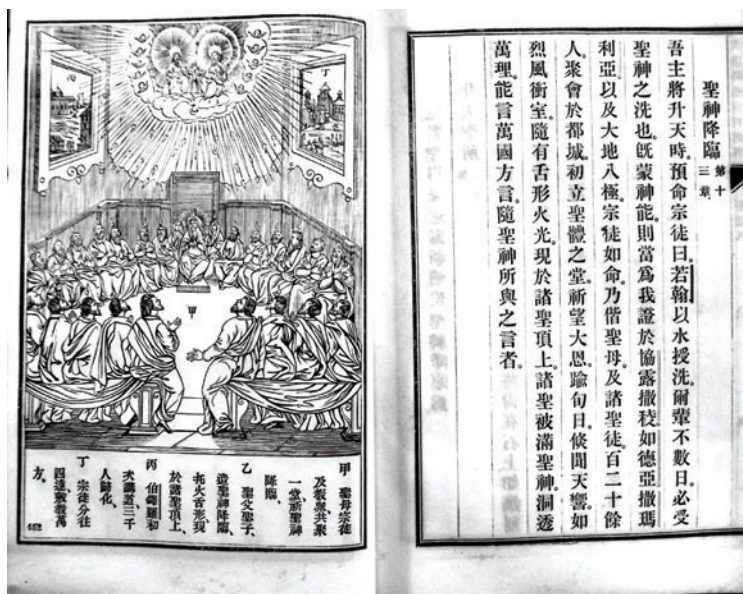 聖神降臨 第十三章
吾主將升天時。預命宗徒曰。若翰以水授洗。爾輩不數日。必受
聖神之洗也。旣蒙神能。則當爲我證於協露撒稜。如德亞。撒瑪
利亞。以及大地八極。宗徒如命。乃偕聖母。及諸聖徒。百二十餘
人。聚會於都城。初立聖體之堂。祈望大恩。踰旬日。倏聞天響。如
烈風衝室。隨有舌形火光。現於諸聖頂上。諸聖被滿聖神。洞透
萬理。能言萬國方言。隨聖神所與之言者。
丁
丙
甲
甲 聖母宗徒
及敎衆共聚
一堂祈聖神
降臨、
乙 聖父聖子、
遣聖神降臨、
托火舌形現
於諸聖頂上、
丙 伯鐸羅初
次講道三千
人歸化、
丁 宗徒分往
四遠敷敎萬
方。
462